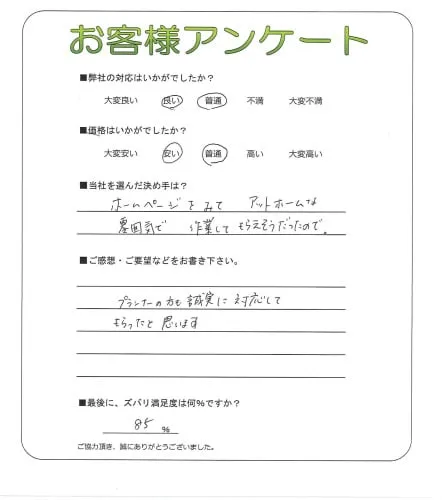 お客様アンケート
■弊社の対応はいかがでしたか？
大変良い 良い 普通 不満 大変不満
■価格はいかがでしたか？
大変安い 安い 普通 高い 大変高い
■当社を選んだ決め手は？
ホームページをみて アットホームな
雰囲気で 作業してもらえそうだったので。
■ご感想・ご要望などをお書き下さい。
プランナーの方も誠実に対応して
もらったと思います
■最後に、ズバリ満足度は何％ですか？
85 ％
ご協力頂き、誠にありがとうございました。